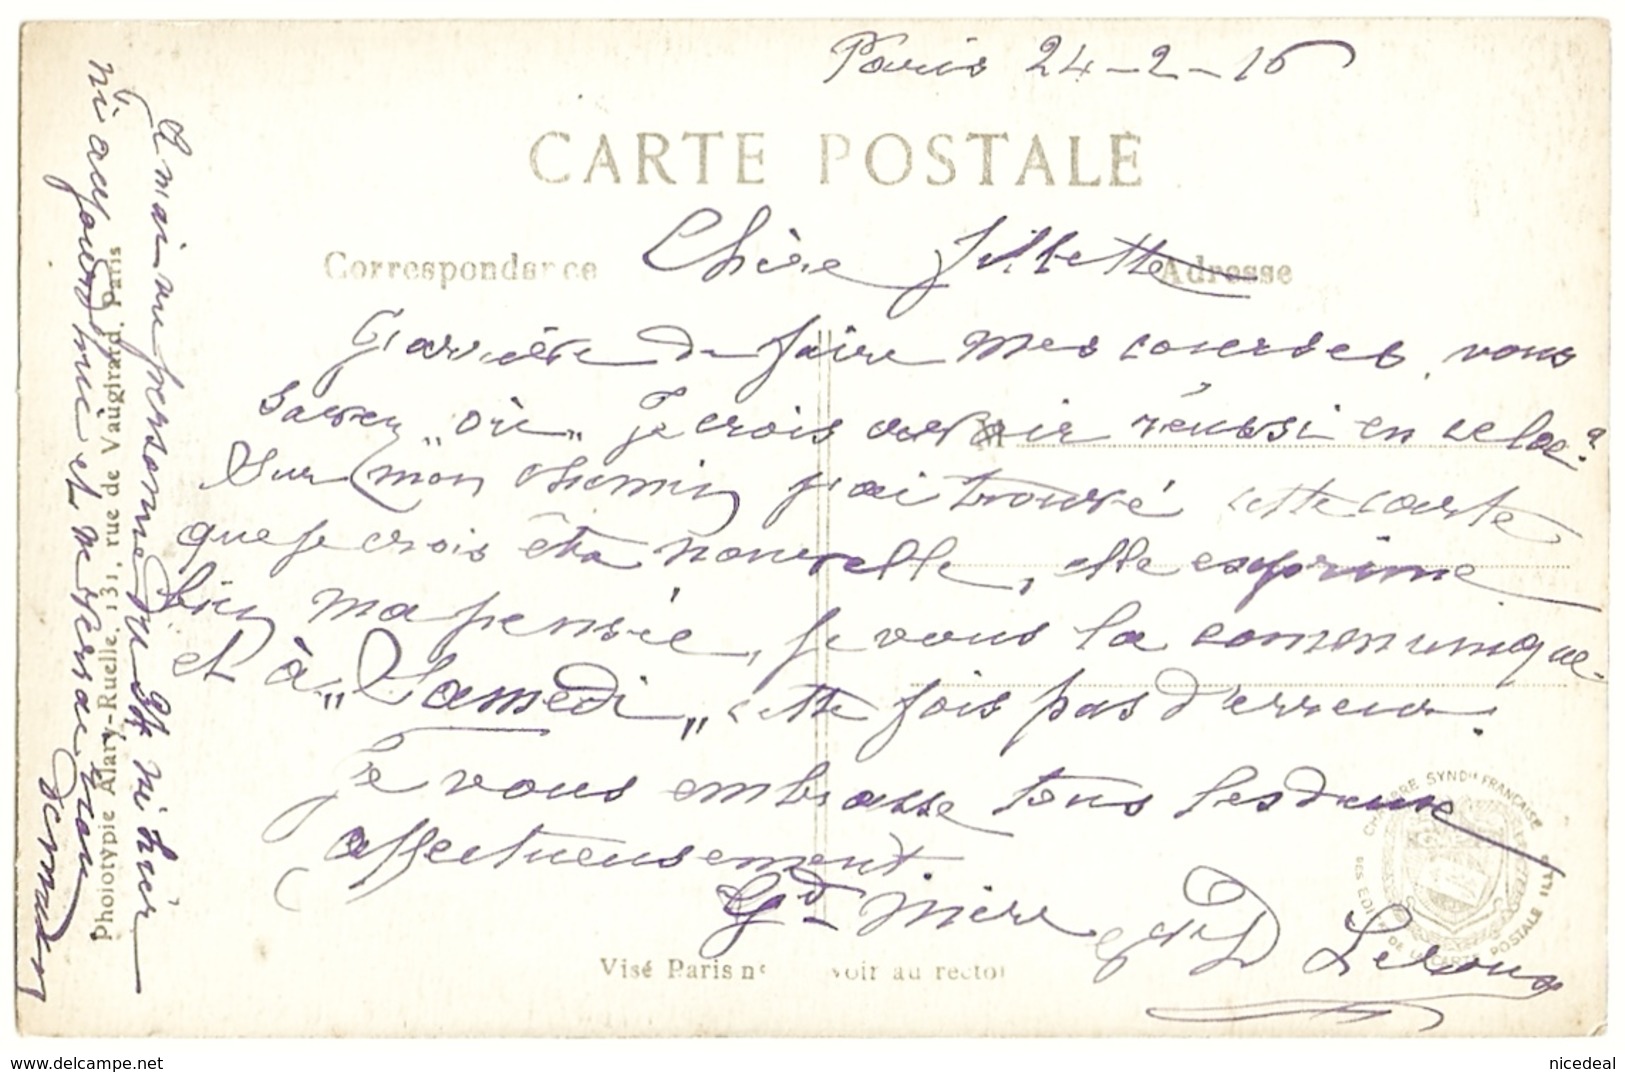 Paris 24-2-16
CARTE POSTALE
Correspondance
Adresse
Chère Jilbette
J'arrive de faire mes courses, vous
savez "où" Je crois avoir réussi en cela.
Sur mon chemin j'ai trouvé cette carte
que je crois être nouvelle, elle exprime
bien ma pensée, je vous la communique
et à "Samedi" cette fois pas d'erreur.
Je vous embrasse tous les deux
affectueusement
Gd mère
D Leroux
Maman personne est ni hier
ni aujourd'hui et ne verrai
demain
Phototypie Alary-Ruelle, 131, rue de Vaugirard, Paris
Visé Paris n° voir au recto
CHAMBRE SYND^le FRANÇAISE
DES EDIT^rs DE LA CARTE POSTALE ILL^ée
www.delcampe.net
nicedeal